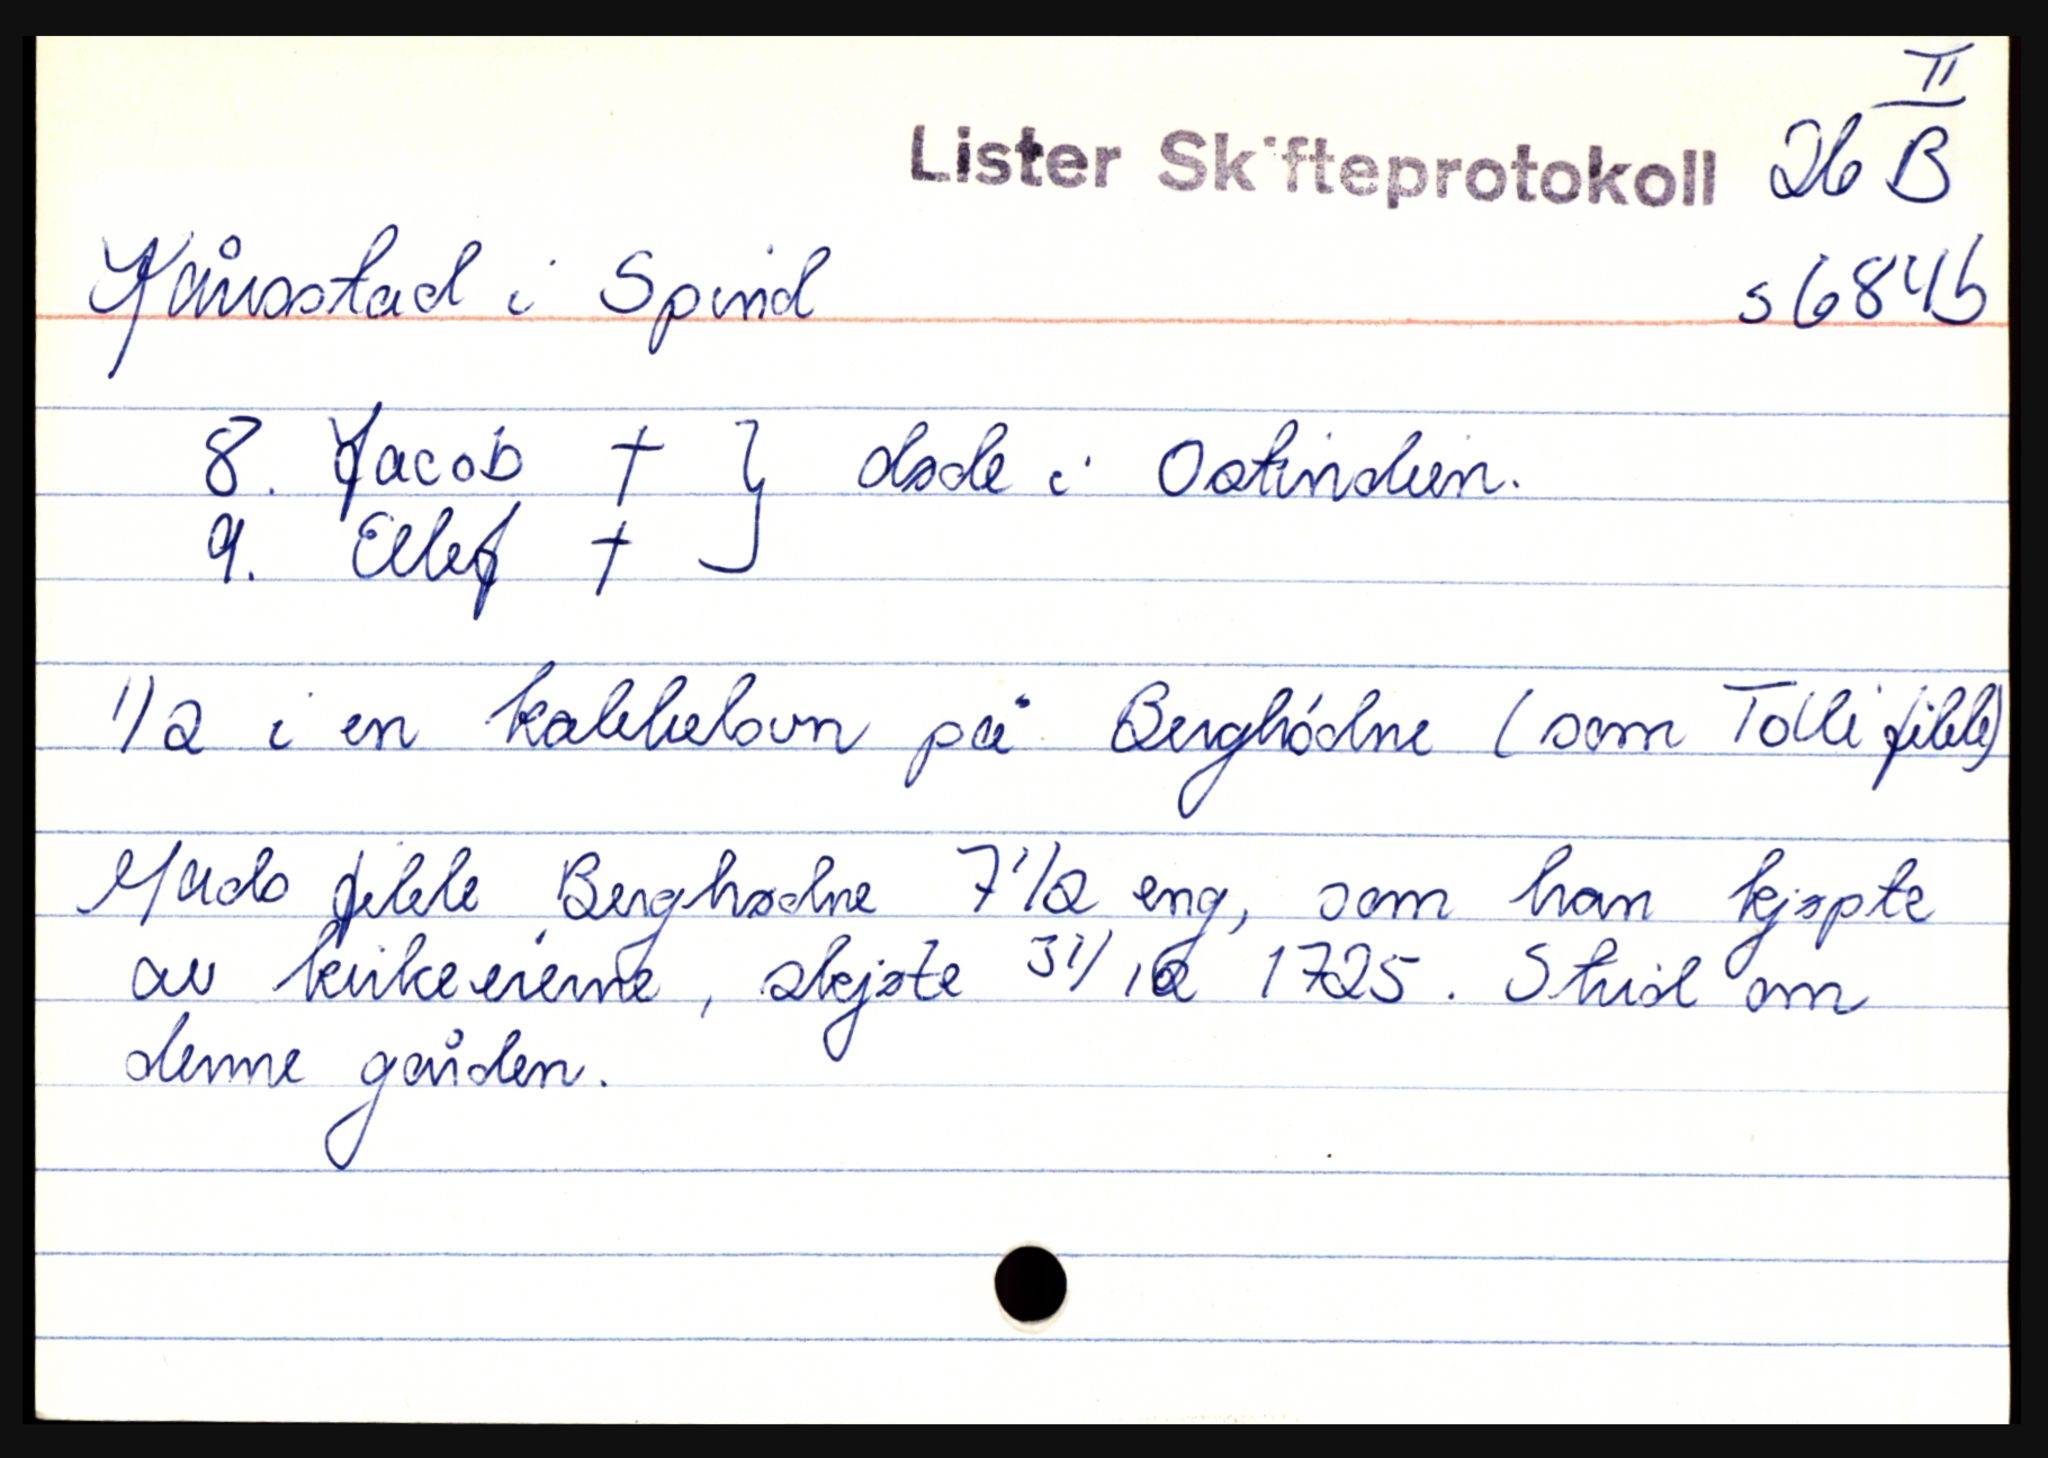 II
Lister Skifteprotokoll 26 B
Kåusstad i Spind s 684b
8. Jacob † } døde i Ostindien.
9. Ellef †
1/2 i en kakkelovn på Berghódne (som Tolli fikk)
Mads fikk Berghødne 7 1/2 eng, som han kjøpte
av kirkeeierne, skjøte 31/12 1725. Strid om
denne gården.